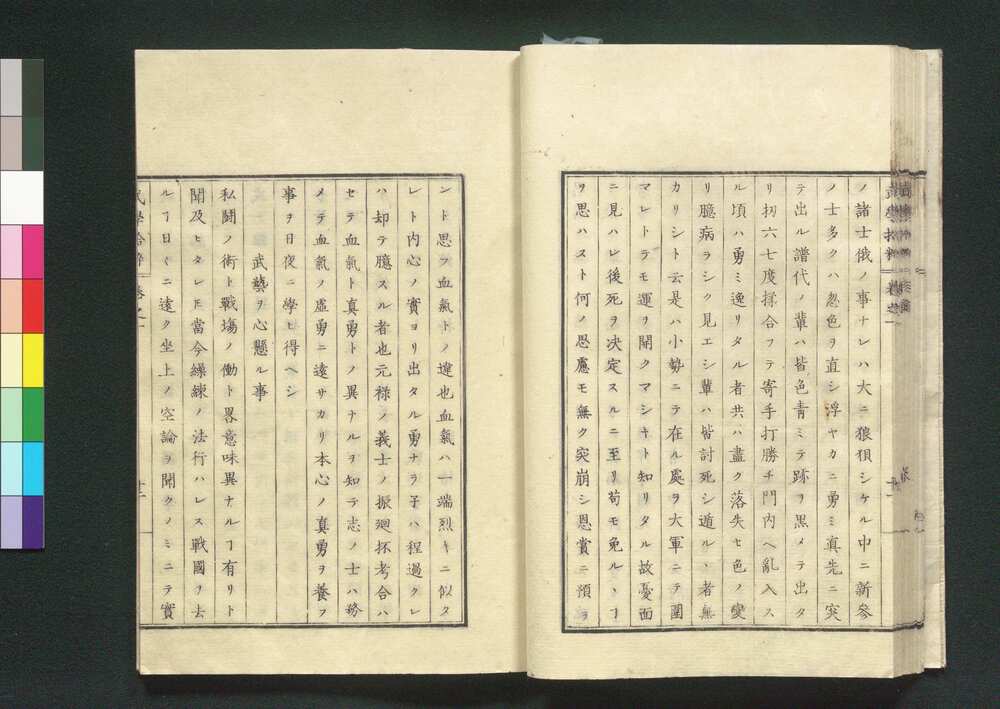 ノ諸士俄ノ事ナレハ大ニ狼狽シケル中ニ新參
ノ士多クハ忽色ヲ直シ浮ヤカニ勇ミ真先ニ突
テ出ル譜代ノ輩ハ皆色青ミテ跡ヲ黒メテ出タ
リ扨六七度揉合フテ寄手打勝チ門内ヘ亂入ス
ル頃ハ勇ミ逸リタル者共ハ盡ク落失セ色ノ變
リ臆病ラシク見エシ輩ハ皆討死シ遁ルヽ者無
カリシト云是ハ小勢ニテ在ル處ヲ大軍ニテ圍
マレトテモ運ヲ開クマシキト知リタル故憂面
ニ見ハレ後死ヲ決定スルニ至リ苟モ免ルヽヿ
ヲ思ハスト何ノ思慮モ無ク突崩シ恩賞ニ預ラ
ント思フ血氣トノ違也血氣ハ一端烈キニ似タ
レト内心ノ實ヨリ出タル勇ナラ子ハ程過クレ
ハ却テ臆スル者也元禄ノ義士ノ振廻抔考合ハ
セテ血氣ト真勇トノ異ナルヲ知テ志ノ士ハ務
メテ血氣ノ虚勇ニ遠サカリ本心ノ真勇ヲ養フ
事ヲ日夜ニ學ヒ得ヘシ
武藝ヲ心懸ル事
私鬪ノ術ト戰塲ノ働ト畧意味異ナルヿ有リト
聞及ヒタレ𪜈當今繰練ノ法行ハレス戰國ヲ去
ルヿ日〱ニ遠ク坐上ノ空論ヲ聞クノミニテ實